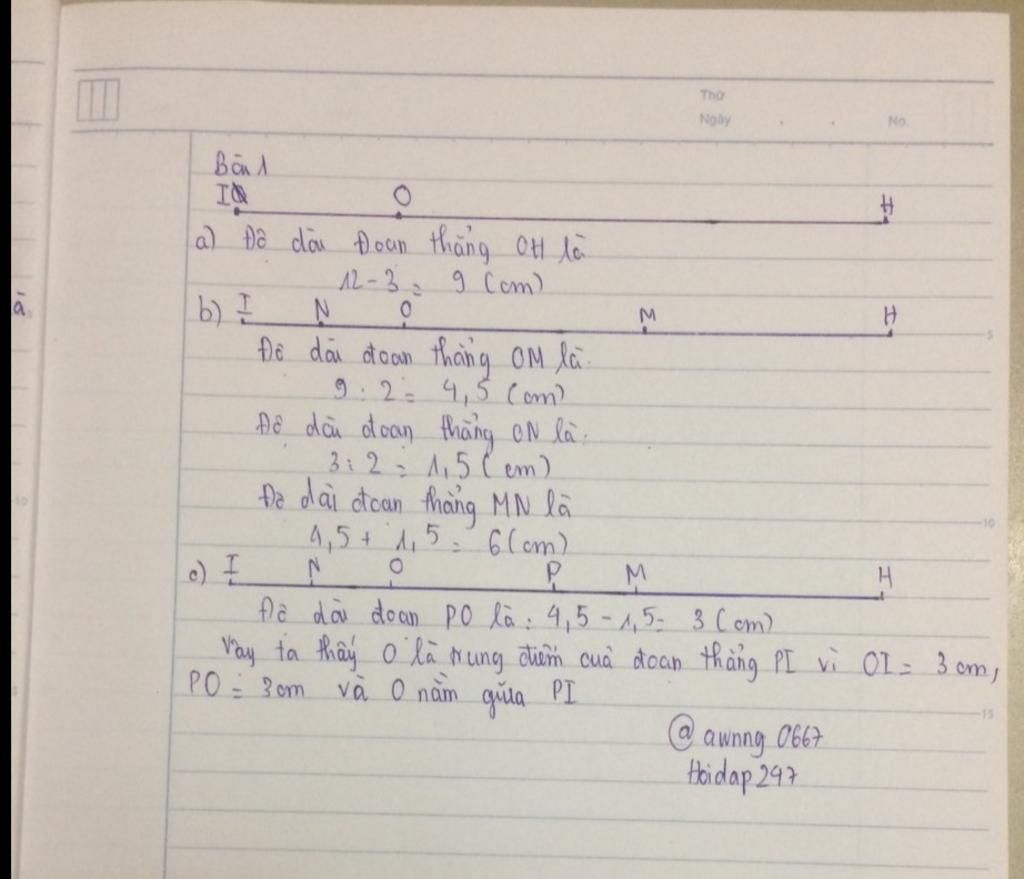 Thứ
Ngày . . No.
Bài 1
I O H
a) Độ dài Đoạn thẳng OH là
12 - 3 = 9 (cm)
b) I N O M H
Độ dài đoạn thẳng OM là:
9 : 2 = 4,5 (cm)
Độ dài đoạn thẳng ON là:
3 : 2 = 1,5 (cm)
Độ dài đoạn thẳng MN là
4,5 + 1,5 = 6 (cm)
c) I N O P M H
Độ dài đoạn PO là : 4,5 - 1,5 = 3 (cm)
Vậy ta thấy O là trung điểm của đoạn thẳng PI vì OI = 3 cm,
PO = 3cm và O nằm giữa PI
@ awnng 0667
Hoidap247
5
10
15
10